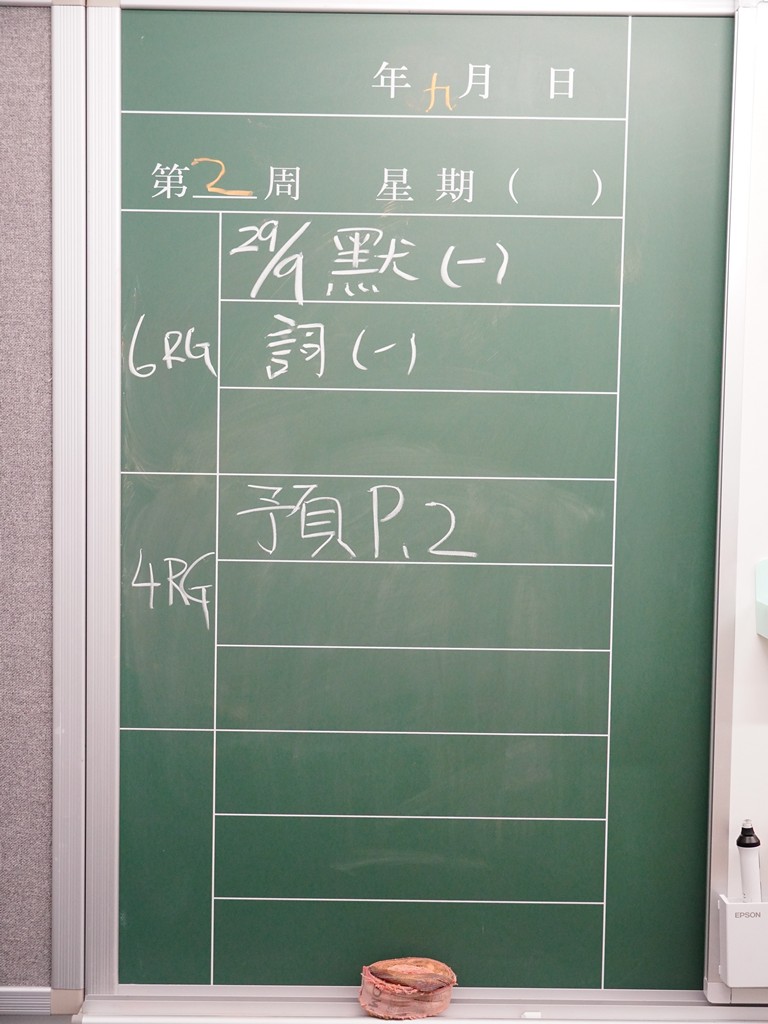 年九月 日
第2周 星期( )
6RG
29/9 默(一)
詞(一)
4RG
預P.2
EPSON